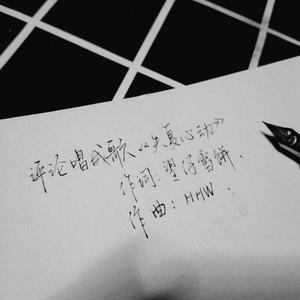 评论唱成歌《矢夏心动》
作词:望仔雪饼.
作曲:HHW.